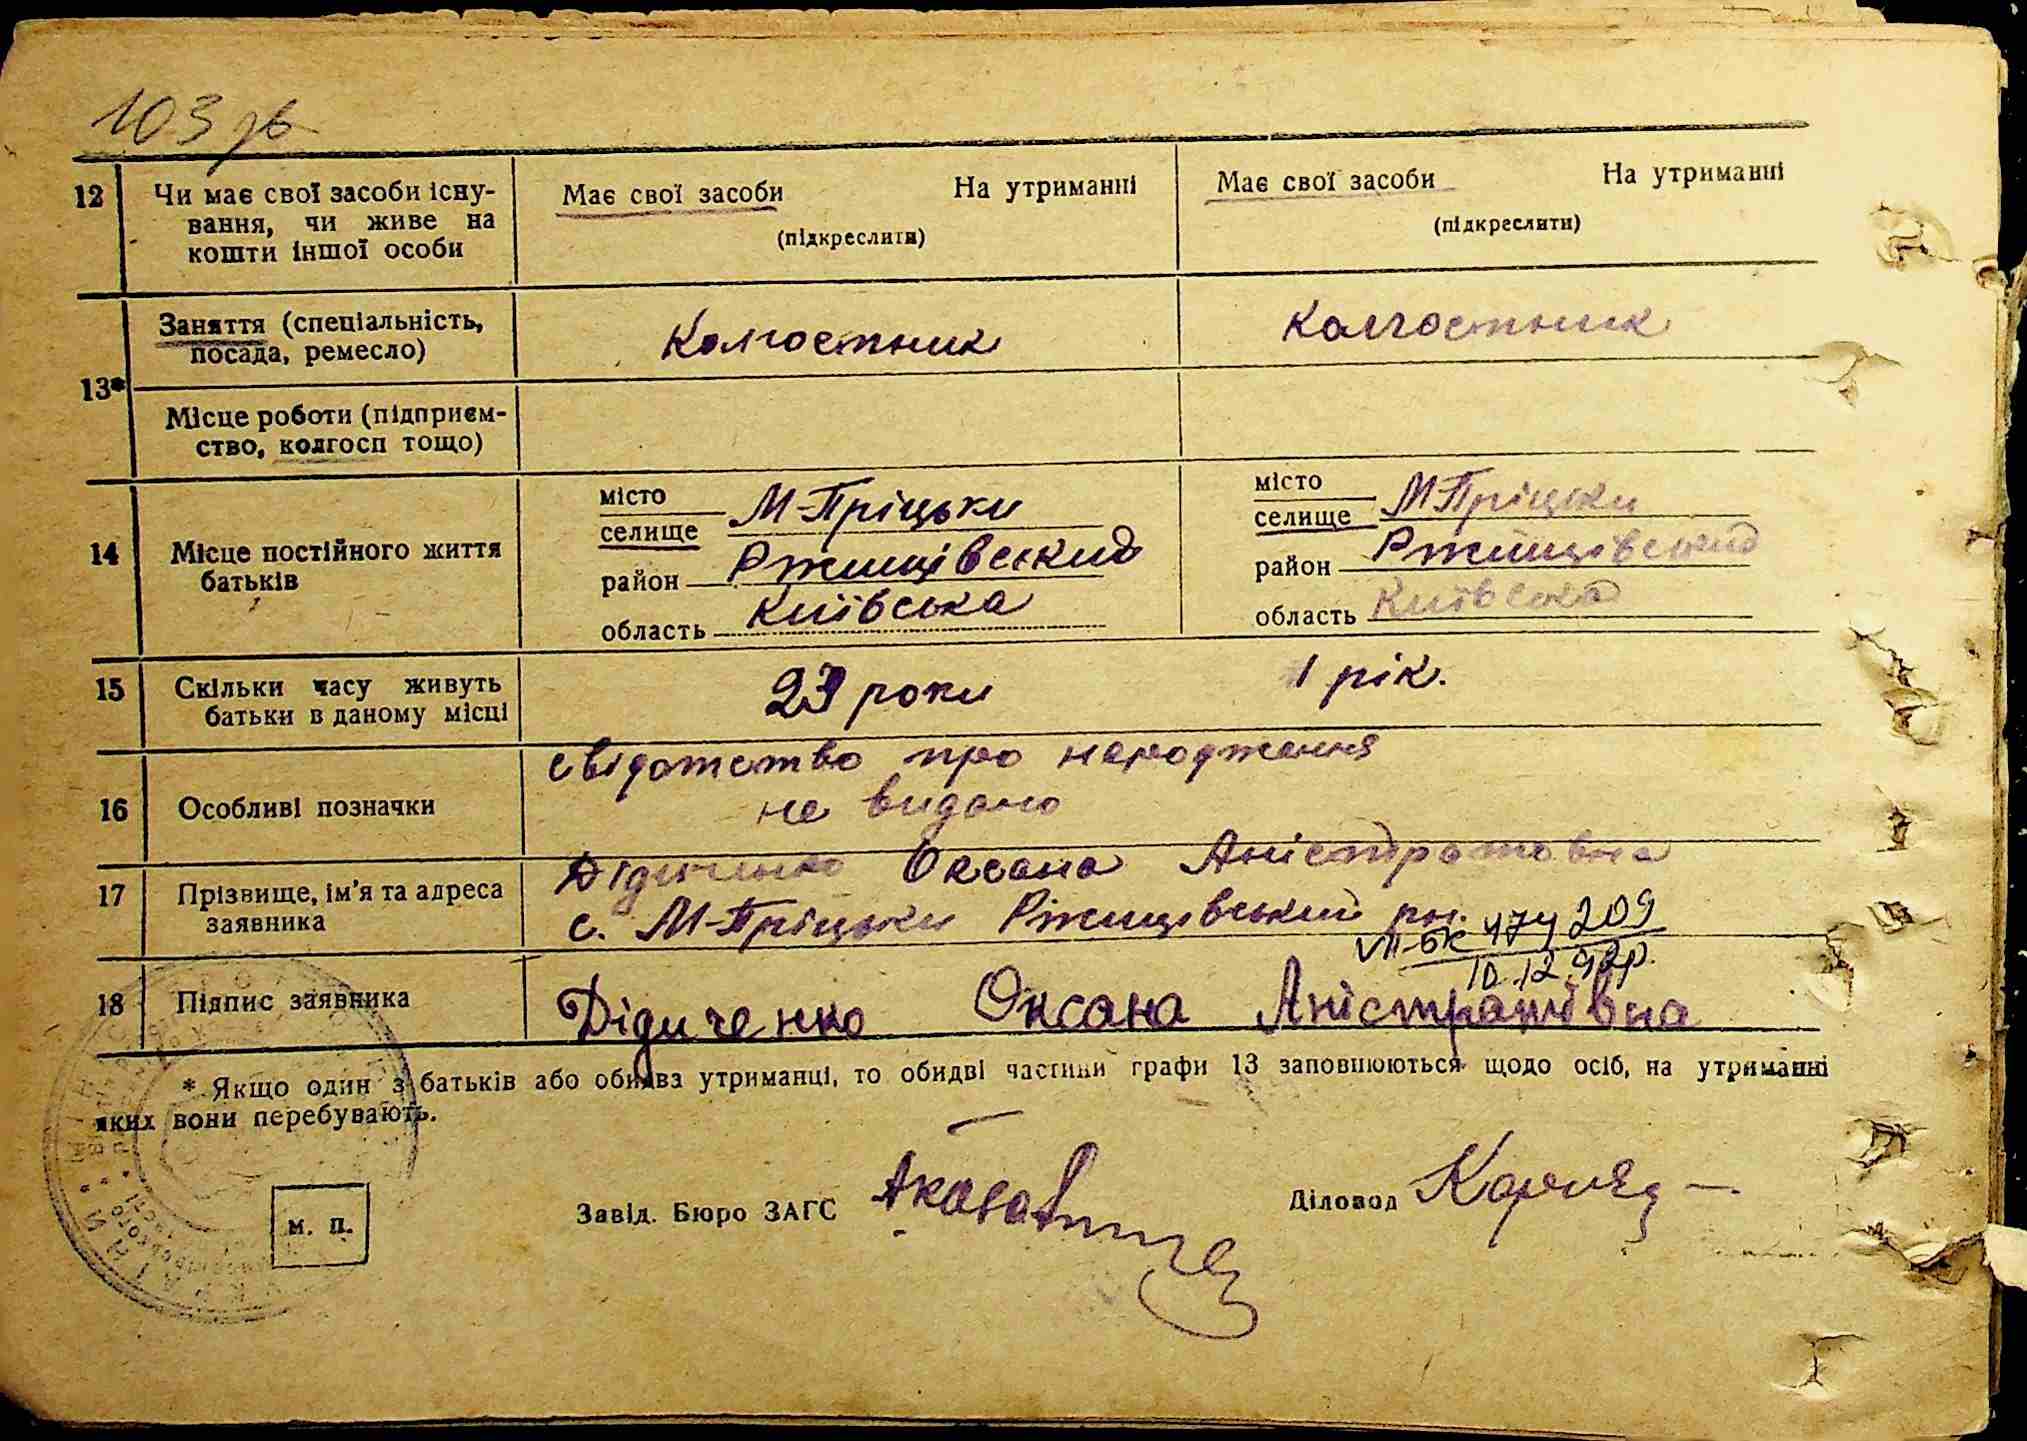 103 зв
12 Чи має свої засоби існу- Має свої засоби На утриманні Має свої засоби На утриманні
вання, чи живе на (підкреслити) (підкреслити)
кошти іншої особи
13* Заняття (спеціальність, Колгостник Колгостник
посада, ремесло)
Місце роботи (підприєм-
ство, колгосп тощо)
14 Місце постійного життя місто М-Пріцьки місто М-Пріцьки
батьків селище селище
район Ржищівський район Ржищівський
область Київська область Київська
15 Скільки часу живуть 23 роки 1 рік.
батьки в даному місці
свідотство про народження
16 Особливі позначки не видано
17 Прізвище, ім'я та адреса Дідиченко Оксана Аністратовна
заявника с. М-Пріцьки Ржищівський рн.
VII-БК 474209
10.12.92р.
18 Підпис заявника Дідиченко Оксана Аністратівна
* Якщо один з батьків або обидва утриманці, то обидві частини графи 13 заповнюються щодо осіб, на утриманні
яких вони перебувають.
м. п. Завід. Бюро ЗАГС Діловод